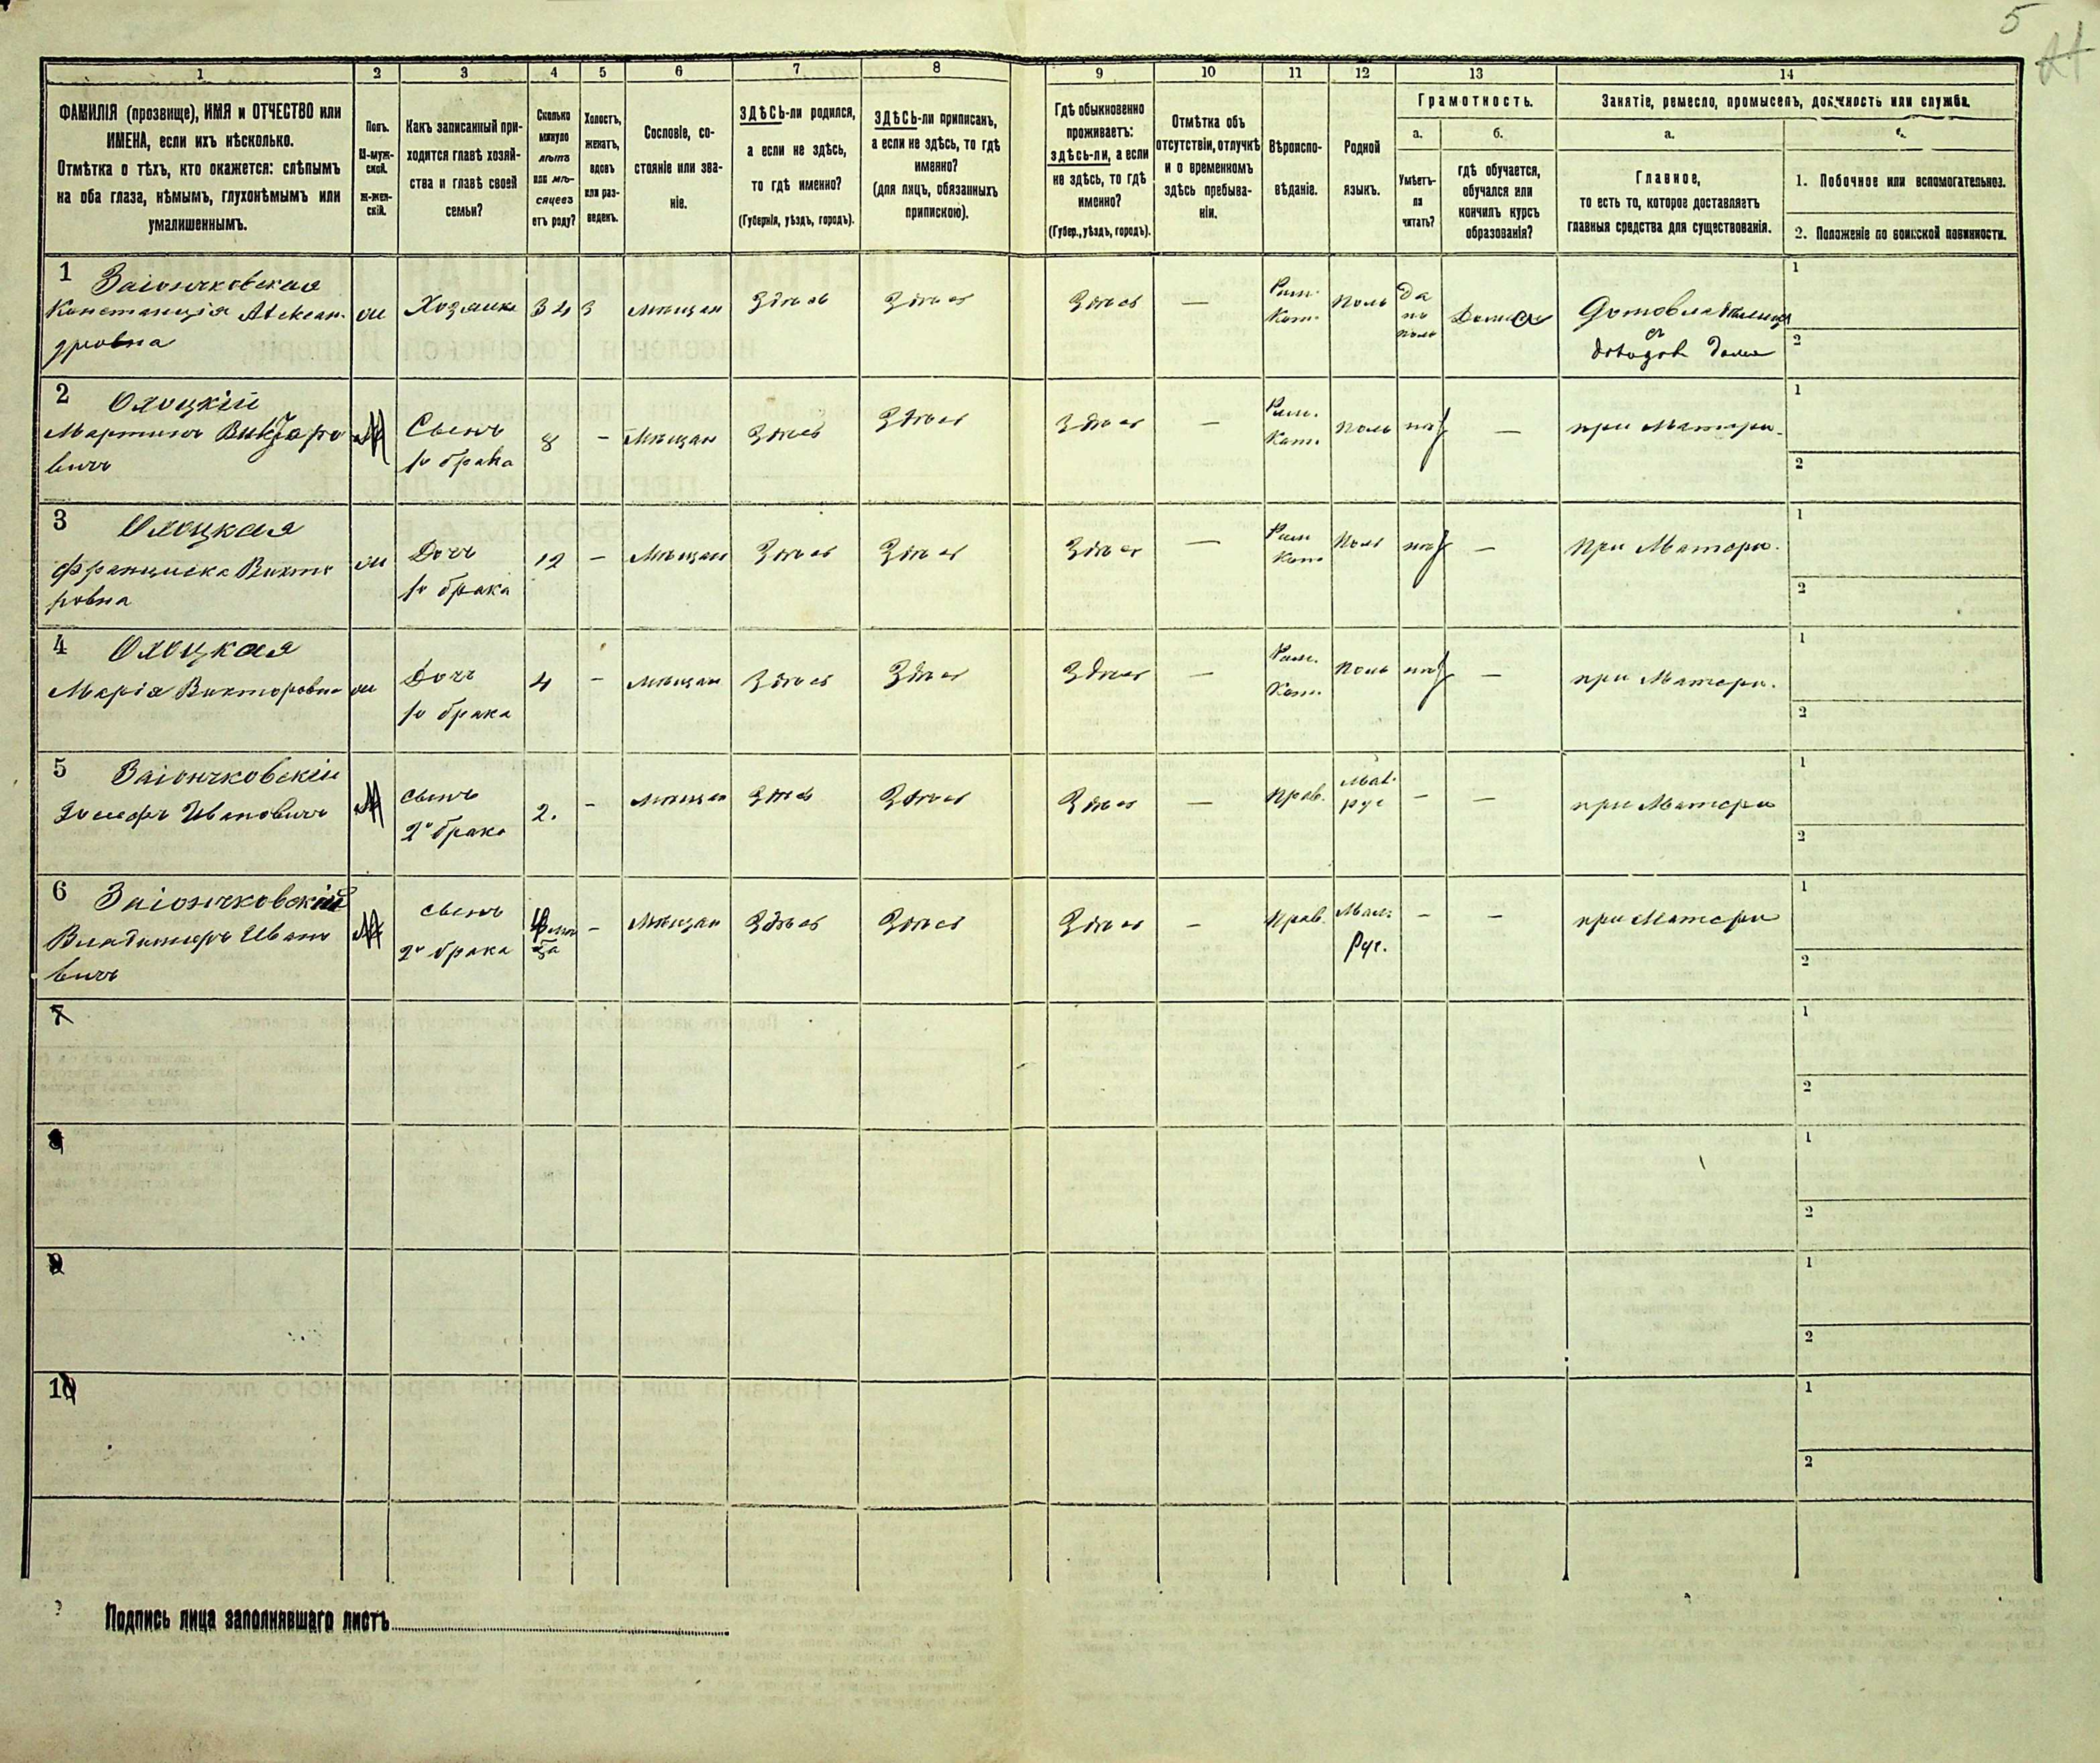 5
1 2 3 4 5 6 7 8 9 10 11 12 13 14
ФАМИЛІЯ (прозвище), ИМЯ и ОТЧЕСТВО или
ИМЕНА, если ихъ нѣсколько.
Отмѣтка о тѣхъ, кто окажется: слѣпымъ
на оба глаза, нѣмымъ, глухонѣмымъ или
умалишеннымъ.
Полъ.
М-муж-
ской.
Ж-жен-
скій.
Какъ записанный при-
ходится главѣ хозяй-
ства и главѣ своей
семьи?
Сколько
минуло
лѣтъ
или мѣ-
сяцевъ
отъ роду?
Холостъ,
женатъ,
вдовъ
или раз-
веденъ.
Сословіе, со-
стояніе или зва-
ніе.
ЗДѢСЬ-ли родился,
а если не здѣсь,
то гдѣ именно?
(Губернія, уѣздъ, городъ).
ЗДѢСЬ-ли приписанъ,
а если не здѣсь, то гдѣ
именно?
(для лицъ, обязанныхъ
припискою).
Гдѣ обыкновенно
проживаетъ:
здѣсь-ли, а если
не здѣсь, то гдѣ
именно?
(Губер., уѣздъ, городъ).
Отмѣтка объ
отсутствіи, отлучкѣ
и о временномъ
здѣсь пребыва-
ніи.
Вѣроиспо-
вѣданіе.
Родной
языкъ.
Грамотность.
а.
Умѣетъ-
ли
читать?
б.
гдѣ обучается,
обучался или
кончилъ курсъ
образованія?
Занятіе, ремесло, промыселъ, должность или служба.
а.
Главное,
то есть то, которое доставляетъ
главныя средства для существованія.
1. Побочное или вспомогательное.
2. Положеніе по воинской повинности.
1 Заіончковская
Констанція Алексан-
дровна
Хозяйка 34 мѣщан Здѣсь Здѣсь Здѣсь —
Рим.
Кат.
Поль
Да
по
поль
Дома
съ
доходов дома
1
2
2 Олоцкій
Мартинъ Викторо
вичъ
М
Сынъ
1о брака
8 — Мѣщан Здѣсь Здѣсь Здѣсь —
Рим.
Кат.
Поль нѣт — при Матери.
1
2
3 Олоцкая
Франциска Викто
ровна
Дочь
1о брака
12 — Мѣщан Здѣсь Здѣсь Здѣсь —
Рим
Кат
Поль нѣт — При Матери.
1
2
4 Олоцкая
Марія Викторовна
Дочь
1о брака
4 — мѣщан Здѣсь Здѣсь Здѣсь —
Рим.
Кат.
Поль нѣт — при Матери.
1
2
5 Заіончковскій
Іосифъ Ивановичъ
М
сынъ
2о брака
2. — мѣщан Здѣсь Здѣсь Здѣсь — Прав.
Мал.
рус
— — при Матери
1
2
6 Заіончковскій
Владимиръ Ивано
вичъ
М
сынъ
2о брака
— Мѣщан Здѣсь Здѣсь Здѣсь — Прав.
Мал.
Рус.
— — при Матери
1
2
7
1
2
8
1
2
9
1
2
10
1
2
Подпись лица заполнявшаго листъ